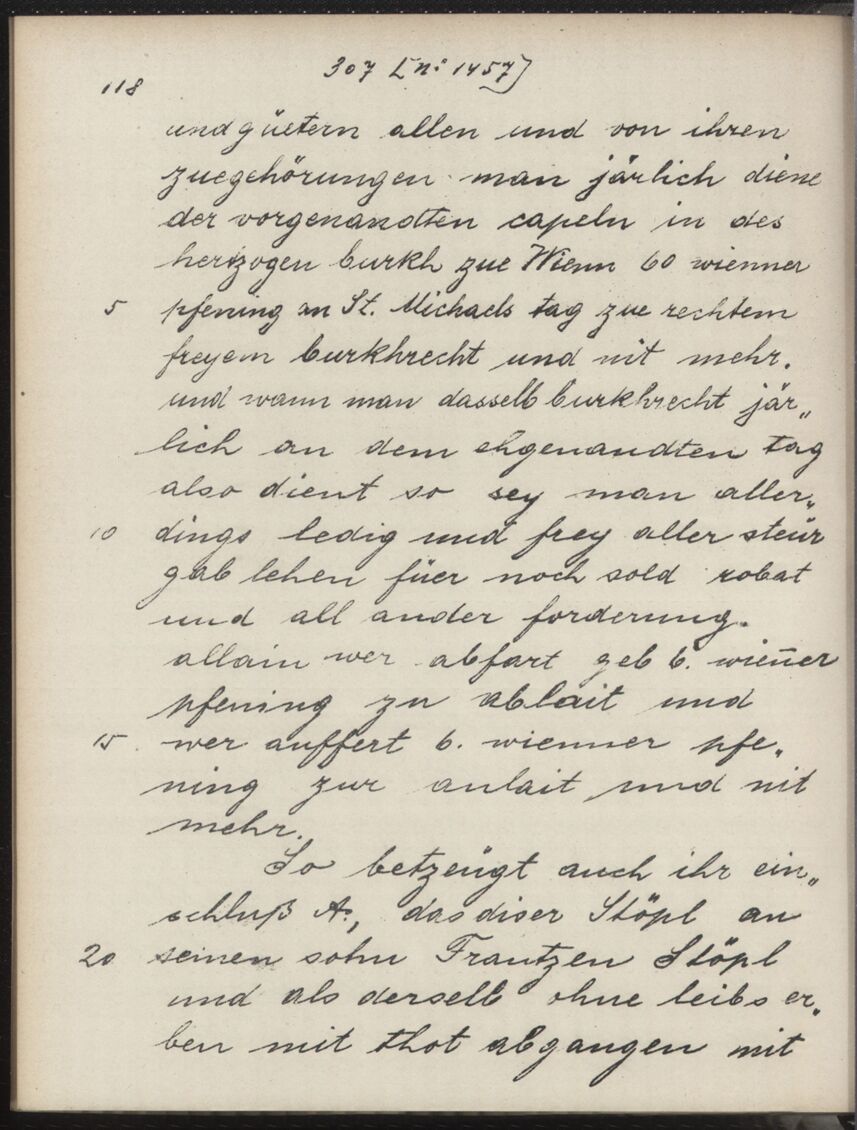 307 [nº 1457]
118
und güetern allen und von ihren
zuegehörungen man järlich diene
der vorgenandten capeln in des
hertzogen burkh zue Wienn 60 wienner
5 pfening an St. Michaels tag zue rechtem
freyem burkhrecht und nit mehr.
und wann man dasselb burkhrecht jär„
lich an dem ehgenandten tag
also dient so sey man aller„
10 dings ledig und frey aller steür
gab lehen füer noch sold robat
und all ander forderung.
allain wer abfart geb 6. wien̄er
pfening zu ablait und
15. wer auffert 6. wienner pfe„
ning zur anlait und nit
mehr.
So betzeügt auch ihr ein„
schluß A:, das diser Stöpl an
20 seinen sohn Frantzen Stöpl
und als derselb ohne leibs er„
ben mit thot abgangen mit